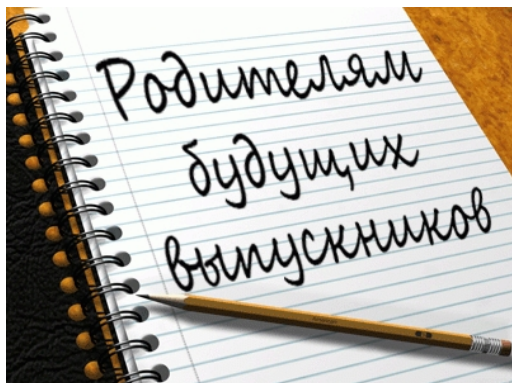 Родителям
будущих
выпускников